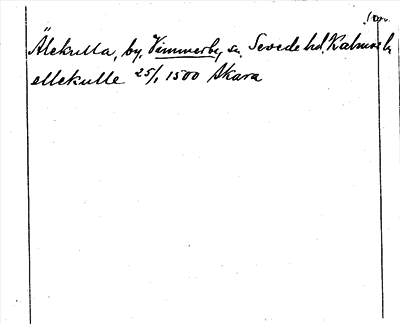 Älekulla, by, Vimmerby sn. Sevede hd. Kalmar l.
ellekulle 25/1 1500 Skara